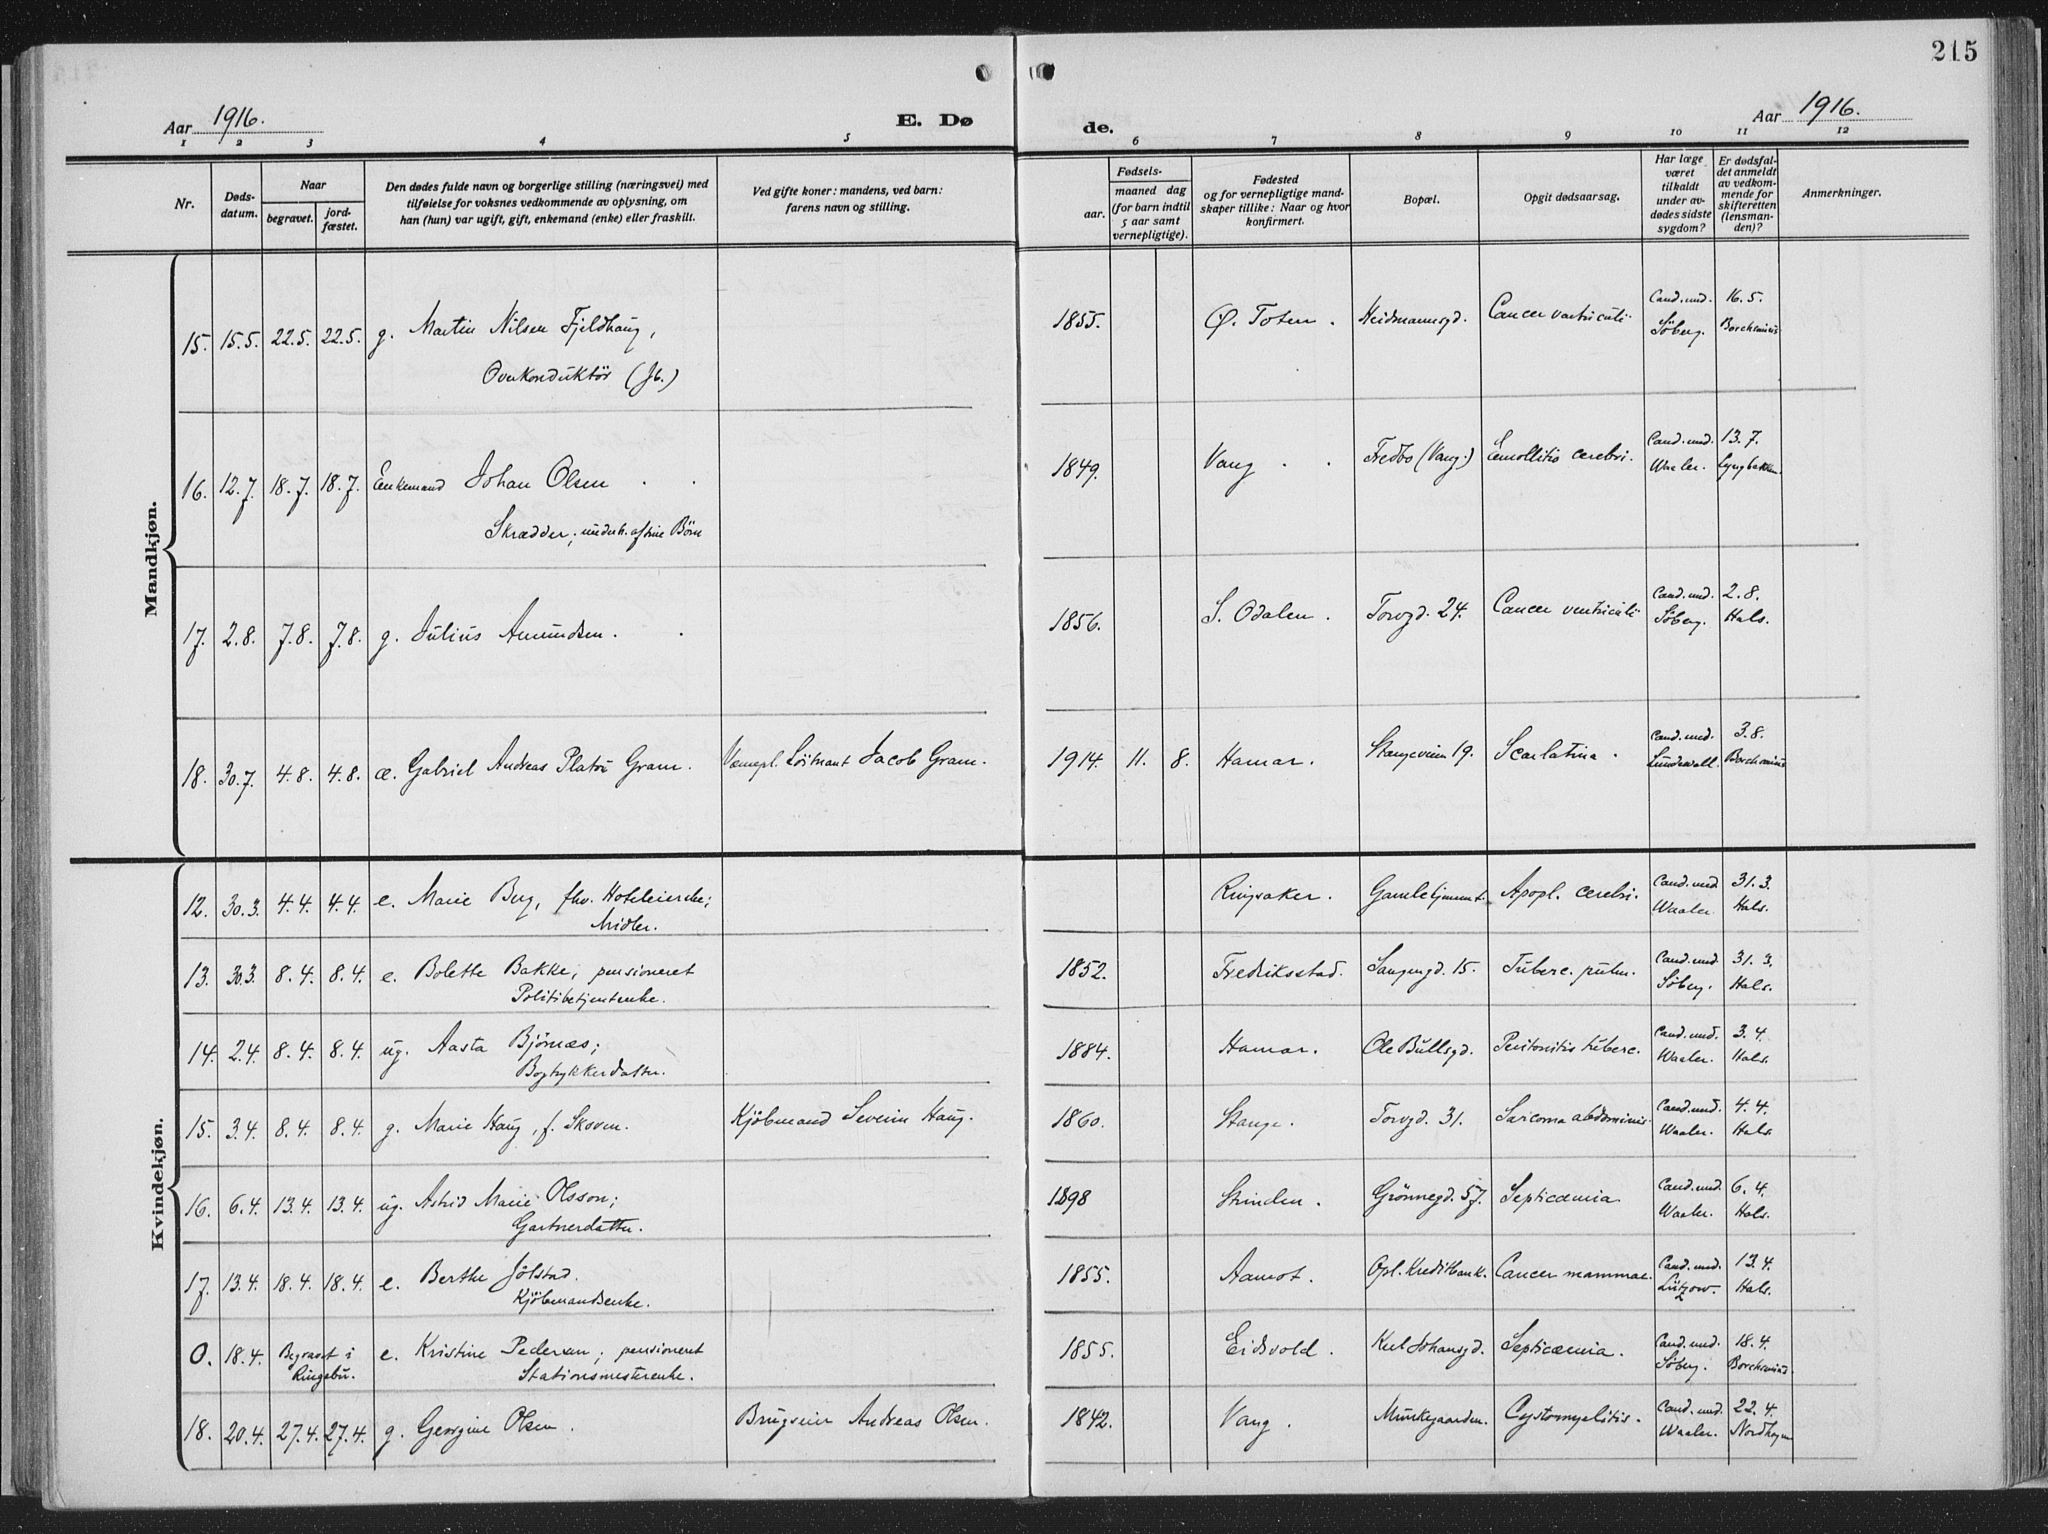 215
Aar 1916. E. Dø de. Aar 1916.
1 2 3 4 5 6 7 8 9 10 11 12
Nr.
Døds-
datum.
Naar
begravet.
jord-
fæstet.
Den dødes fulde navn og borgerlige stilling (næringsvei) med
tilføielse for voksnes vedkommende av oplysning, om
han (hun) var ugift, gift, enkemand (enke) eller fraskilt.
Ved gifte koner: mandens, ved barn:
farens navn og stilling.
Fødsels-
aar.
maaned dag
(for barn indtil
5 aar samt
vernepligtige).
Fødested
og for vernepligtige mand-
skaper tillike: Naar og hvor
konfirmert.
Bopæl.
Opgit dødsaarsag.
Har læge
været
tilkaldt
under av-
dødes sidste
sygdom?
Er dødsfal-
det anmeldt
av vedkom-
mende for
skifteretten
(lensman-
den)?
Anmerkninger.
Mandkjøn.
15. 15.5. 22.5. 22.5. g. Martin Nilsen Fjeldhaug, 1855. Ø. Toten. Heidmannsgd. Cancer ventriculi. Cand. med. 16.5.
Overkonduktör (Jb.) Söberg. Borchenius
16. 12.7. 18.7. 18.7. Enkemand Johan Olsen 1849. Vang Fredbo (Vang.) Emollitio cerebri. Cand. med. 13.7.
Skrædder, underh. af sine Børn Waaler. Lyngbakken
17. 2.8. 7.8. 7.8. g. Julius Amundsen. 1856. S. Odalen. Torvgd. 24. Cancer ventriculi Cand. med. 2.8.
Söberg. Hals.
18. 30.7. 4.8. 4.8. æ. Gabriel Andreas Platou Gram. Vernepl. Löitnant Jacob Gram. 1914. 11. 8. Hamar. Stangeveien 19. Scarlatina. Cand. med. 3.8.
Lundewall. Borchenius
Kvindekjøn.
12. 30.3. 4.4. 4.4. e. Marie Berg, fhv. Hoteleierske; Ringsaker. Gamlehjemmet. Apopl. cerebri. Cand. med 31.3.
Midler. Waaler. Hals.
13. 30.3. 8.4. 8.4. e. Bolette Bakke; pensioneret 1852. Fredriksstad. Sangengd. 15. Tuberc. pulm. Cand. med 31.3.
Politibetjentenke. Söberg. Hals.
14. 2.4. 8.4. 8.4. ug. Aasta Björnæs; 1884. Hamar. Ole Bullsgd. Peritonitis tuberc. Cand. med. 3.4.
Bogtrykkerdatter. Waaler. Hals.
15. 3.4. 8.4. 8.4. g. Marie Haug, f. Skoven. Kjöbmand Severin Haug. 1860. Stange. Torvgd. 31. Sarcoma abdominis. Cand. med. 4.4.
Waaler. Hals.
16. 6.4. 13.4. 13.4. ug. Astrid Marie Olsson; 1898 Strinden. Grönnegd. 57. Septicæmia Cand. med. 6.4.
Gartnerdatter. Waaler. Hals.
17. 13.4. 18.4. 18.4. e. Berthe Jölstad. 1855. Aamot. Opl. Kreditbank. Cancer mammae. Cand. med. 13.4.
Kjöbmandsenke. Lützow. Hals.
0. 18.4. Begravet i e. Kristine Pedersen; pensioneret 1855. Eidsvold. Karl Johansgd. Septicæmia. Cand. med. 18.4.
Ringebu. Stationsmesterenke. Söberg. Borchenius.
18. 20.4. 27.4. 27.4. g. Georgine Olsen. Brugseier Andreas Olsen. 1842. Vang. Munkegaarden. Cystomyelitis. Cand. med. 22.4.
Waaler. Nordhagen